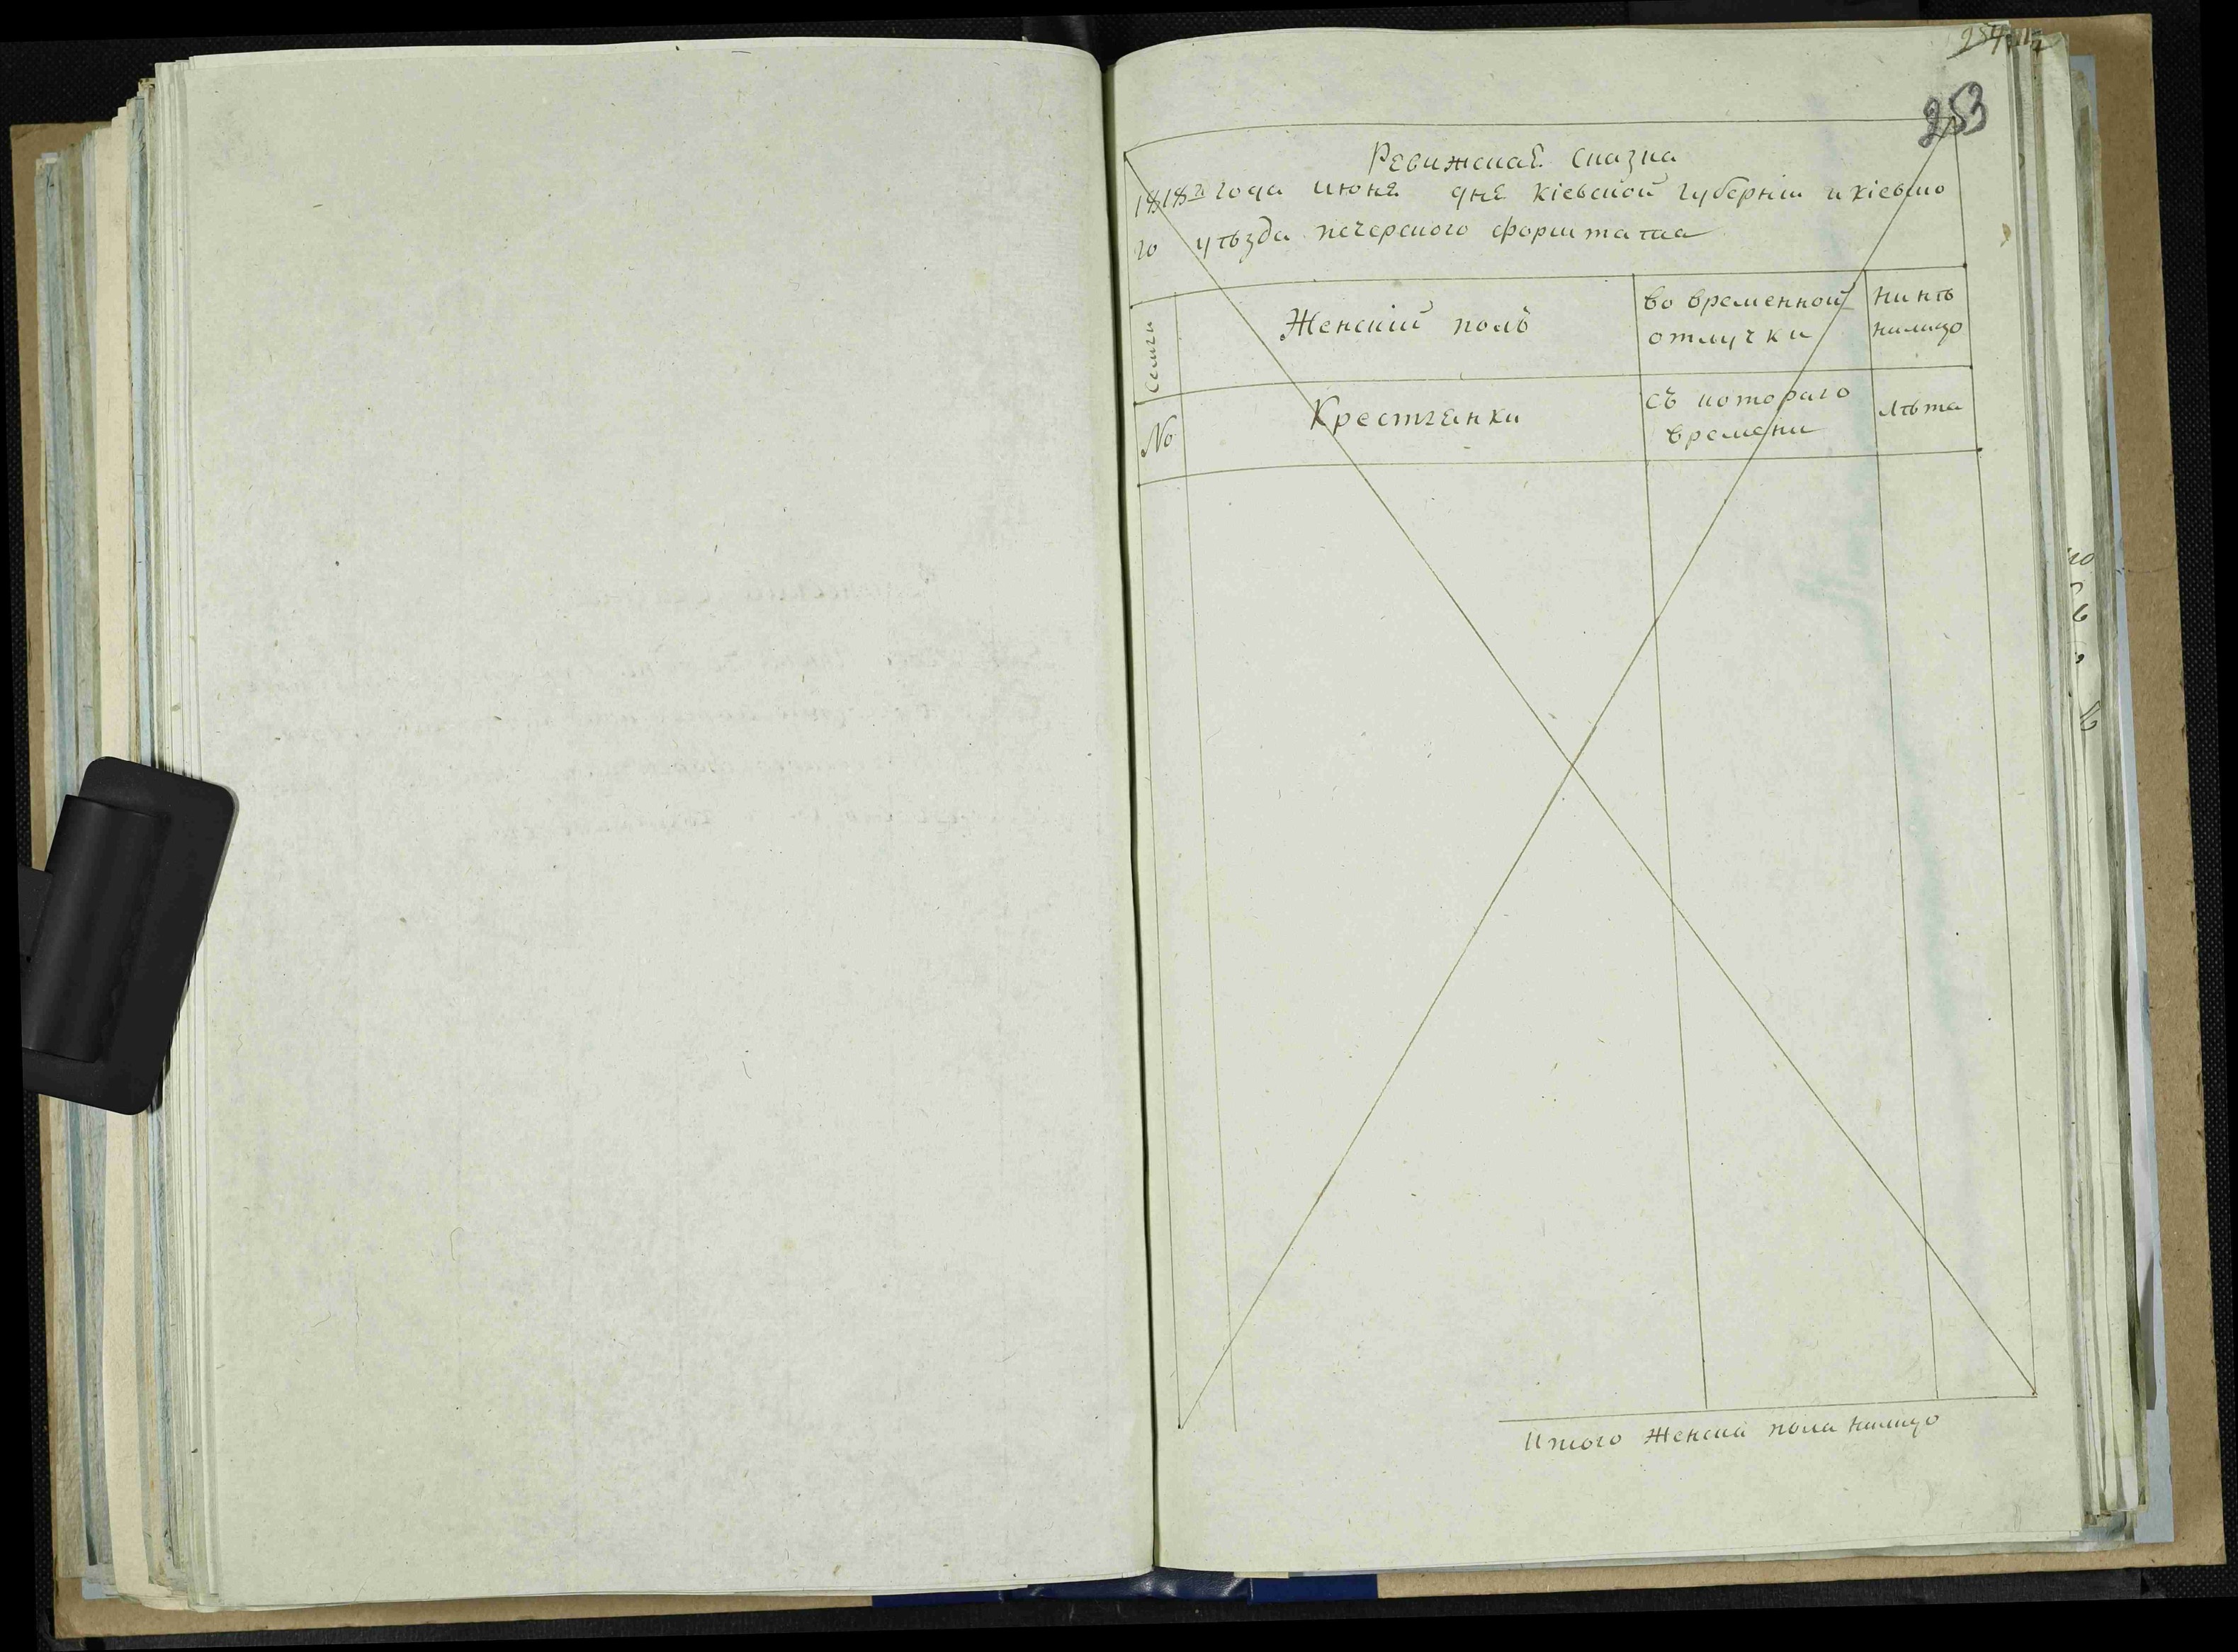 253
Ревижская сказка
1818го года июня дня кіевской губерніи и кіевско
го уѣзда печерского форштата
Семьи
Женскій полъ
во временной
отлучки
нинѣ
налицо
№
Крестьянки
съ котораго
времени
лѣта
Итого женска пола налицо